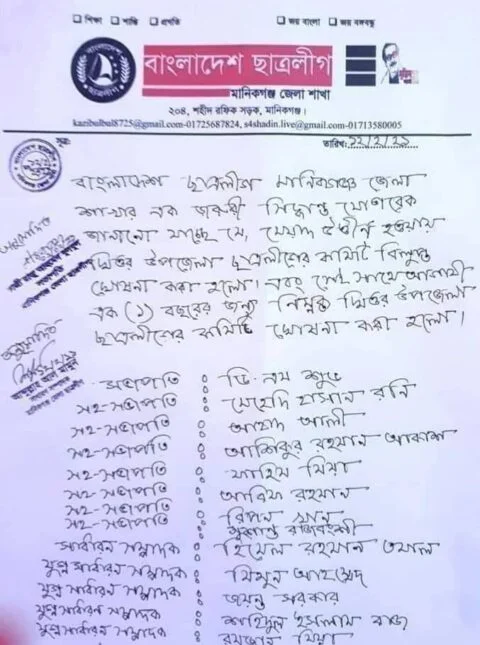 শিক্ষা শান্তি প্রগতি জয় বাংলা জয় বঙ্গবন্ধু
বাংলাদেশ ছাত্রলীগ
মানিকগঞ্জ জেলা শাখা
২০৪, শহীদ রফিক সড়ক, মানিকগঞ্জ।
kazibulbul8725@gmail.com-01725687824, s4shadin.live@gmail.com-01713580005
সূত্র: তারিখ: ১২/২/২১
বাংলাদেশ ছাত্রলীগ মানিকগঞ্জ জেলা
শাখার এক জরুরী সিদ্ধান্ত মোতাবেক
জানানো যাচ্ছে যে, মেয়াদ উত্তীর্ন হওয়ায়
ঘিওর উপজেলা ছাত্রলীগের কমিটি বিলুপ্ত
ঘোষনা করা হলো। এবং সেই সাথে আগামী
এক (১) বছরের জন্য নিম্নক্ত ঘিওর উপজেলা
ছাত্রলীগের কমিটি ঘোষনা করা হলো।
অনুমোদিত
অনুমোদিত
সভাপতি : ভি.এম শুভ
সহ-সভাপতি : মেহেদি হাসান রনি
সহ-সভাপতি : আহাদ আলী
সহ-সভাপতি : আশিকুর রহমান আকাশ
সহ-সভাপতি : ফাহিম মিয়া
সহ-সভাপতি : আরিফ রহমান
সহ-সভাপতি : রিপন খান
সহ-সভাপতি : সুশান্ত রাজবংশী
সাধারন সম্পাদক : হিমেল রহমান তমাল
যুগ্ম সাধারন সম্পাদক : মিথুন আহমেদ
যুগ্ম সাধারন সম্পাদক : জয়ন্ত সরকার
যুগ্ম সাধারন সম্পাদক : শাহিদুল ইসলাম রাজ
যুগ্ম সাধারন সম্পাদক : রমজান মিয়া